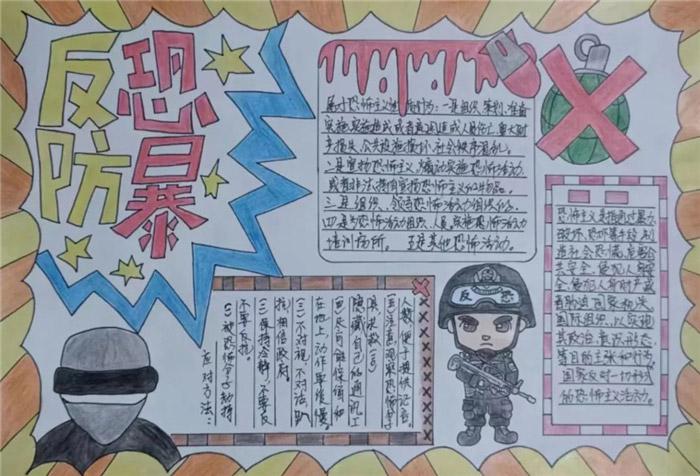 反恐
防暴
属于恐怖主义性质行为：一是组织、策划、准备
实施、实施造成或者意图造成人员伤亡、重大财
产损失、公共设施损坏、社会秩序混乱。
二是宣扬恐怖主义，煽动实施恐怖活动，
或者非法持有宣扬恐怖主义的物品。
三是组织、领导恐怖活动组织的。
四是为恐怖活动组织、人员、实施恐怖活动
培训场所。 五是其他恐怖活动。
恐怖主义是指通过暴力
破坏、恐吓等手段，制
造社会恐慌、危害公
共安全、侵犯人身财产
或者胁迫国家机关、
国际组织，以实现
其政治、意识形态
等目的主张和行为。
国家反对一切形式
的恐怖主义活动。
反恐
应对方法：
(一)被恐怖分子劫持
不要反抗。
(二)保持冷静，不要反
抗，相信政府。
(三)不对视，不对话，趴
在地上，动作要缓慢
(四)尽可能保留和
隐藏自己的通讯工
具
(五)注意观察恐怖分子
人数，便于提供证言。